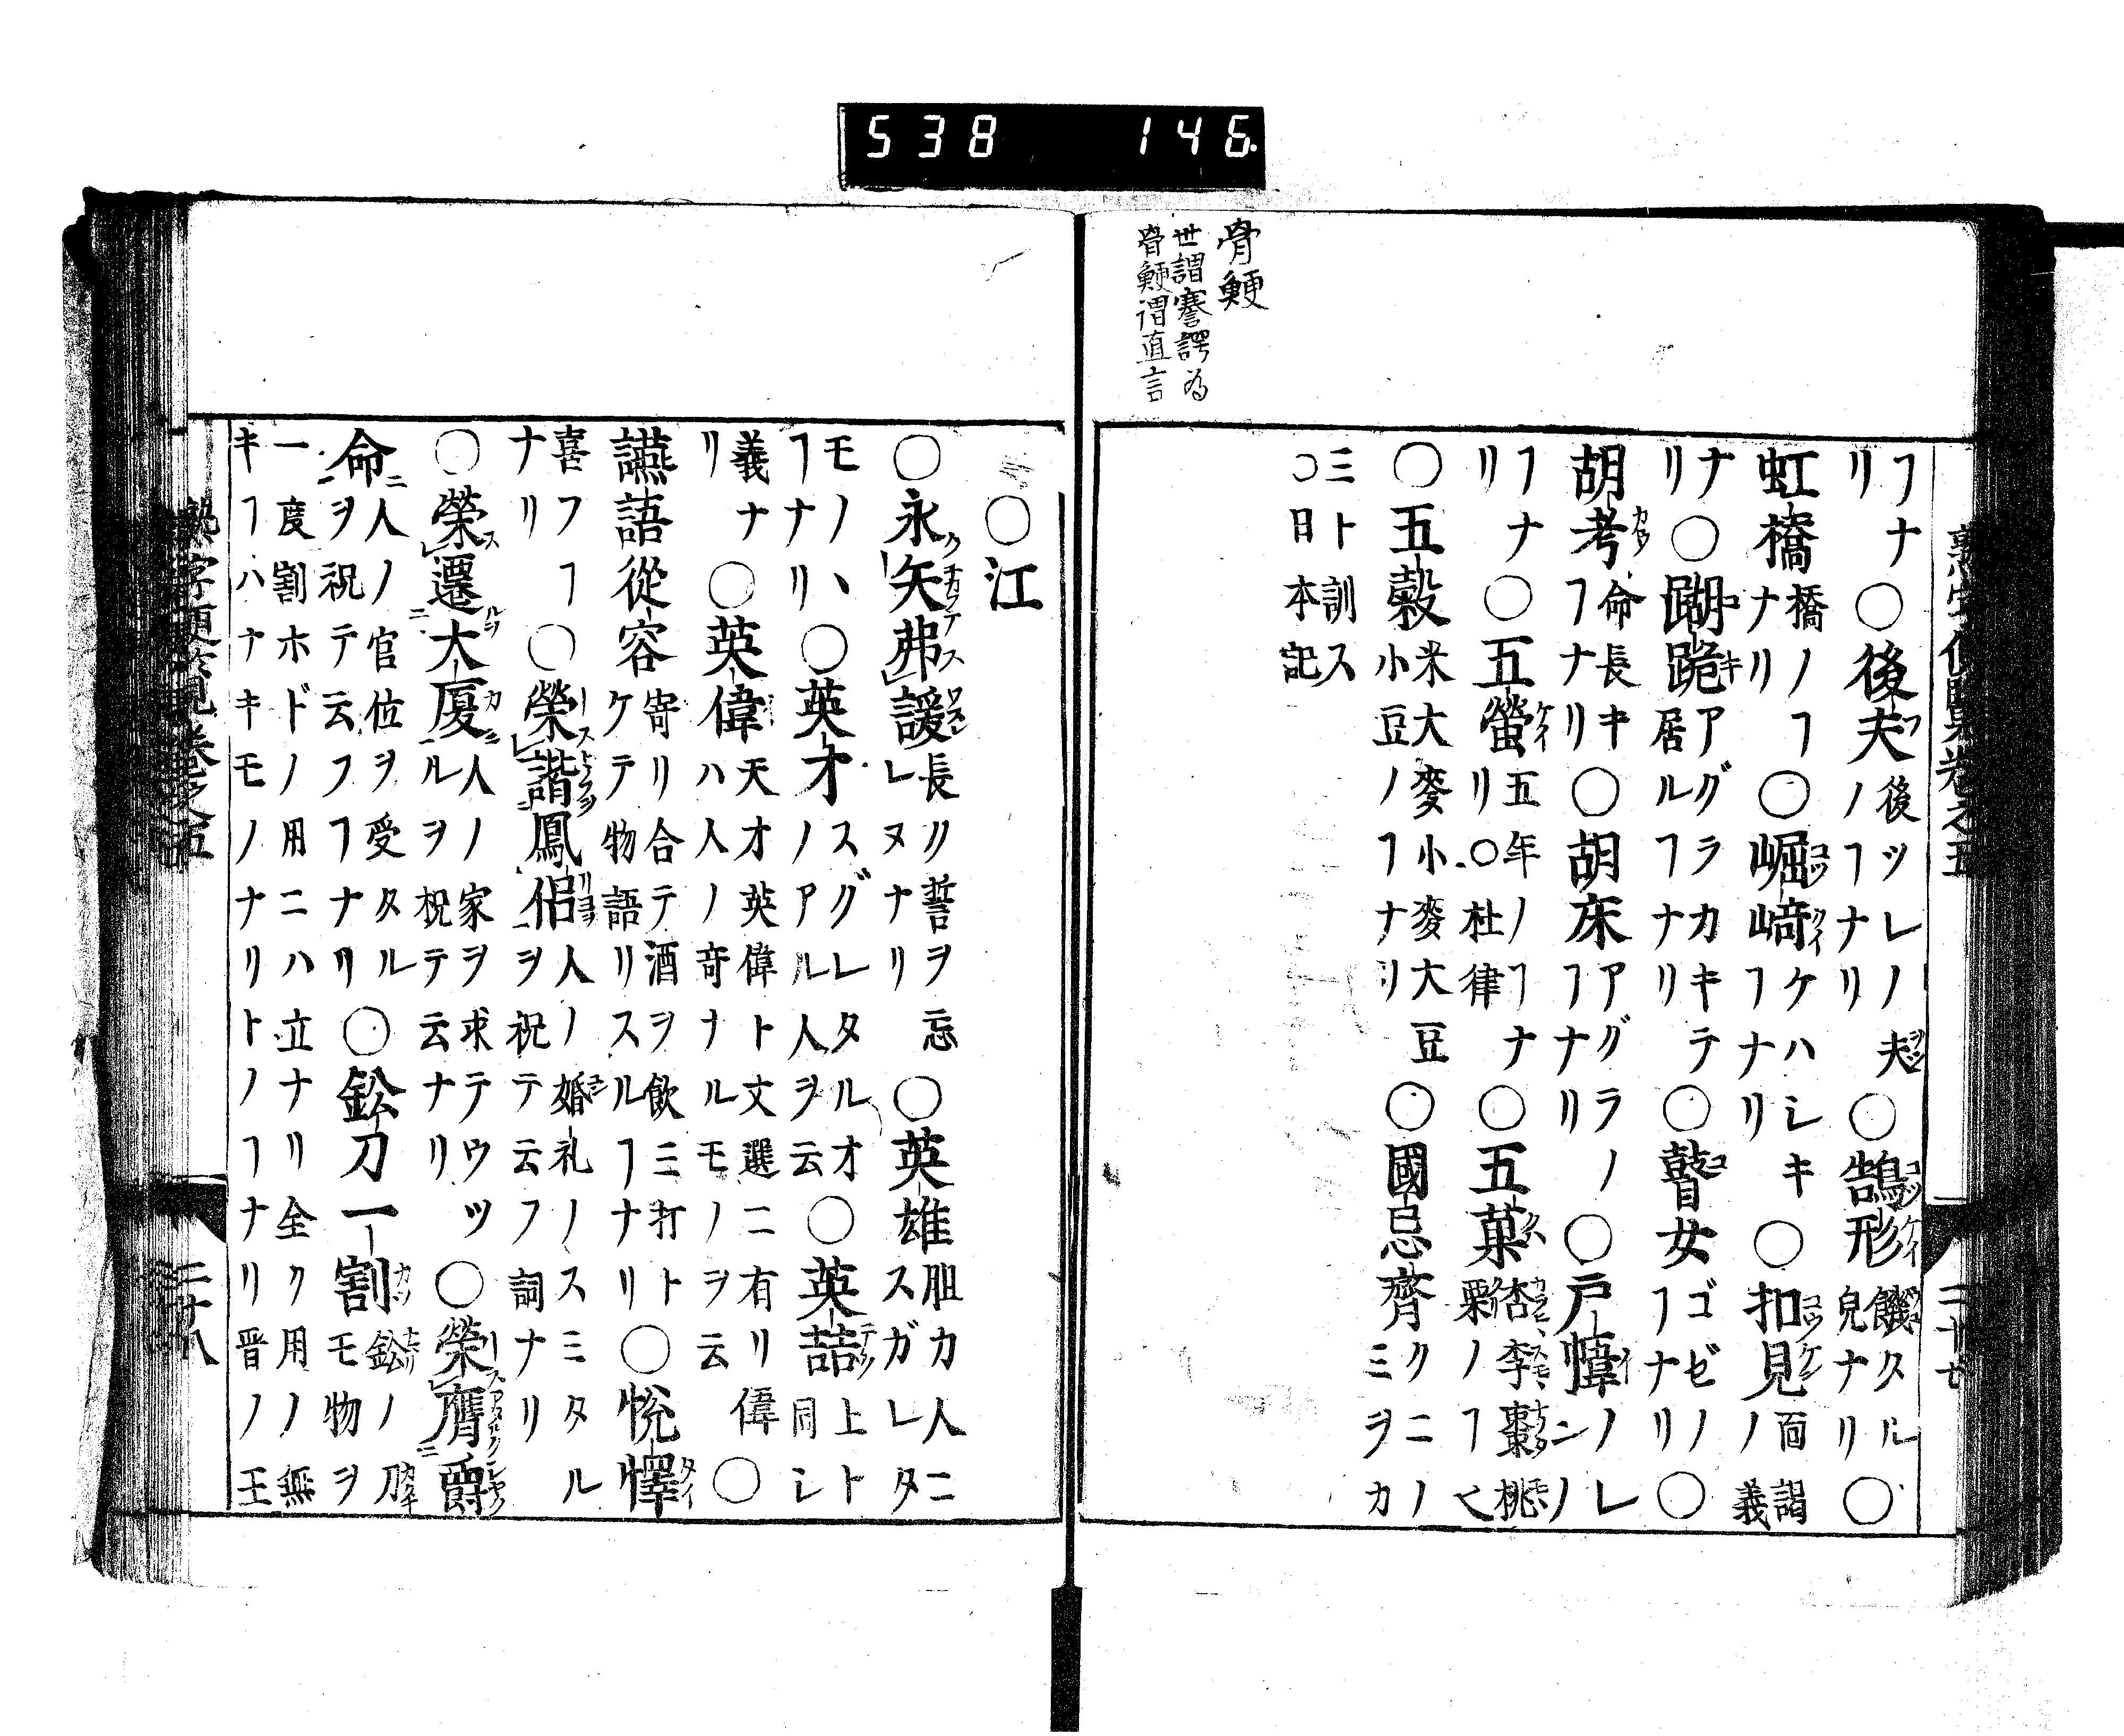 538 146
骨鯁
世謂謇諤為
骨鯁謂直言
ヿナ
リ
○後夫
後ツレノ夫
ノヿナリ
○鵠形
饑タル
皃ナリ
○
虹橋
橋ノヿ
ナリ
○崛﨑
ケハシキ
ヿナリ
○扣見
面謁
ノ義
ナ
リ
○蹴跪
アグラカキテ
居ルヿナリ
○瞽女
ゴゼノ
ヿナリ
○
胡考
命長キ
ヿナリ
○胡床
アグラノ
ヿナリ
○戸幃
ノレ
ンノ
ヿナ
リ
○五螢
五年ノヿナ
リ○杜律
○五菓
杏李棗桃
栗ノヿ
○五穀
米大麥小麥大豆
小豆ノヿナリ
○國忌齊
クニノ
ミヲカ
三ト訓ス
○日本記
熟字便覧卷之五
二十七
○江
○永矢弗諼
長ク誓ヲ忘
レヌナリ
○英雄
胆力人ニ
スガレタ
モノヽ
ヿナリ
○英才
スグレタルオ
ノアル人ヲ云
○英喆
上ト
同シ
義ナ
リ
○英偉
天才英偉ト文選ニ有リ偉
ハ人ノ竒ナルモノヲ云
○
讌語從容
寄リ合テ酒ヲ飲ミ打ト
ケテ物語リスルヿナリ
○悦懌
喜フヿ
ナリ
○榮諧鳳侶
人ノ婚礼ノスミタル
ヲ祝テ云フ詞ナリ
○榮遷大厦
人ノ家ヲ求テウツ
ルヲ祝テ云ナリ
○榮膺爵
命
人ノ官位ヲ受タル
ヲ祝テ云フヿナリ
○鈆刀一割
鈆ノ刀
モ物ヲ
一度割ホドノ用ニハ立ナリ全ク用ノ無
キヿハナキモノナリトノヿナリ晋ノ王
熟字便覧卷之五
二十八